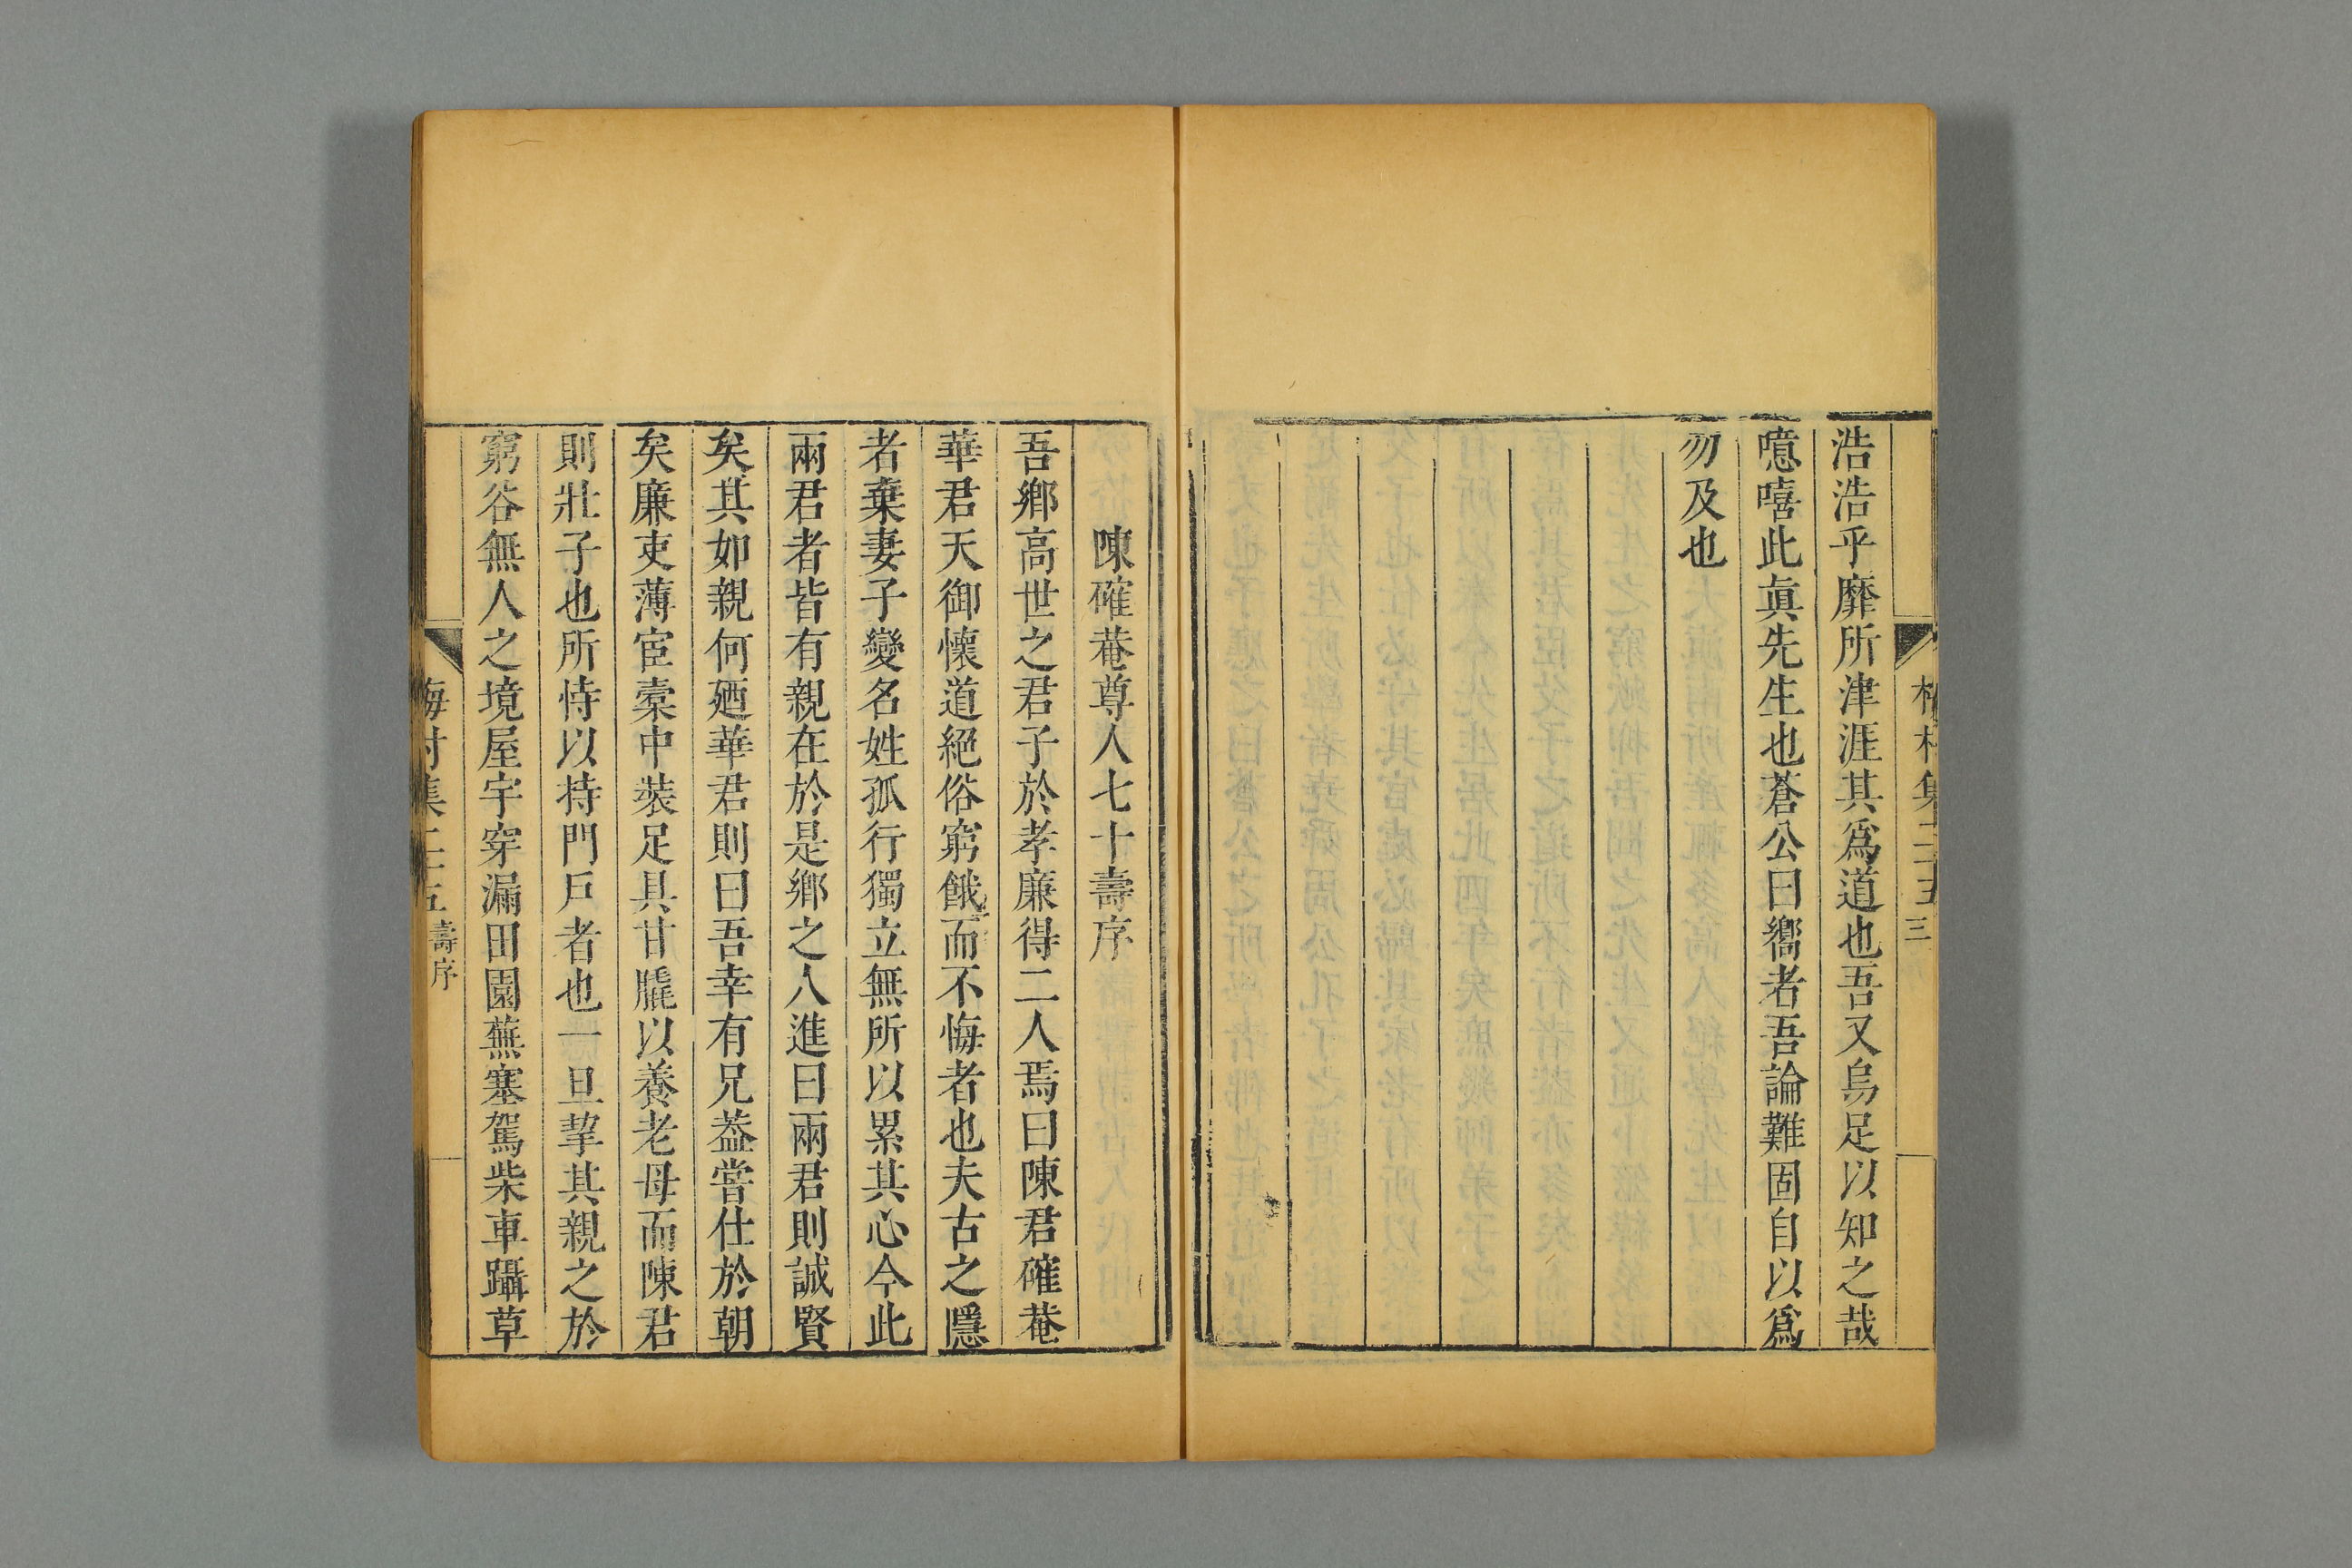 浩浩乎靡所津涯其爲道也吾又烏足以知之哉
噫嘻此眞先生也蒼公曰嚮者吾論難固自以爲
勿及也
陳確菴尊人七十壽序
吾鄉高世之君子於孝廉得二人焉曰陳君確菴
華君天御懷道絕俗窮餓而不悔者也夫古之隱
者棄妻子變名姓孤行獨立無所以累其心今此
兩君者皆有親在於是鄉之人進曰兩君則誠賢
矣其如親何廼華君則曰吾幸有兄葢嘗仕於朝
矣廉吏薄宦橐中裝足具甘毳以養老母而陳君
則壯子也所恃以持門戶者也一旦挈其親之於
窮谷無人之境屋宇穿漏田園蕪塞駕柴車躡草
梅村集二十五 壽序